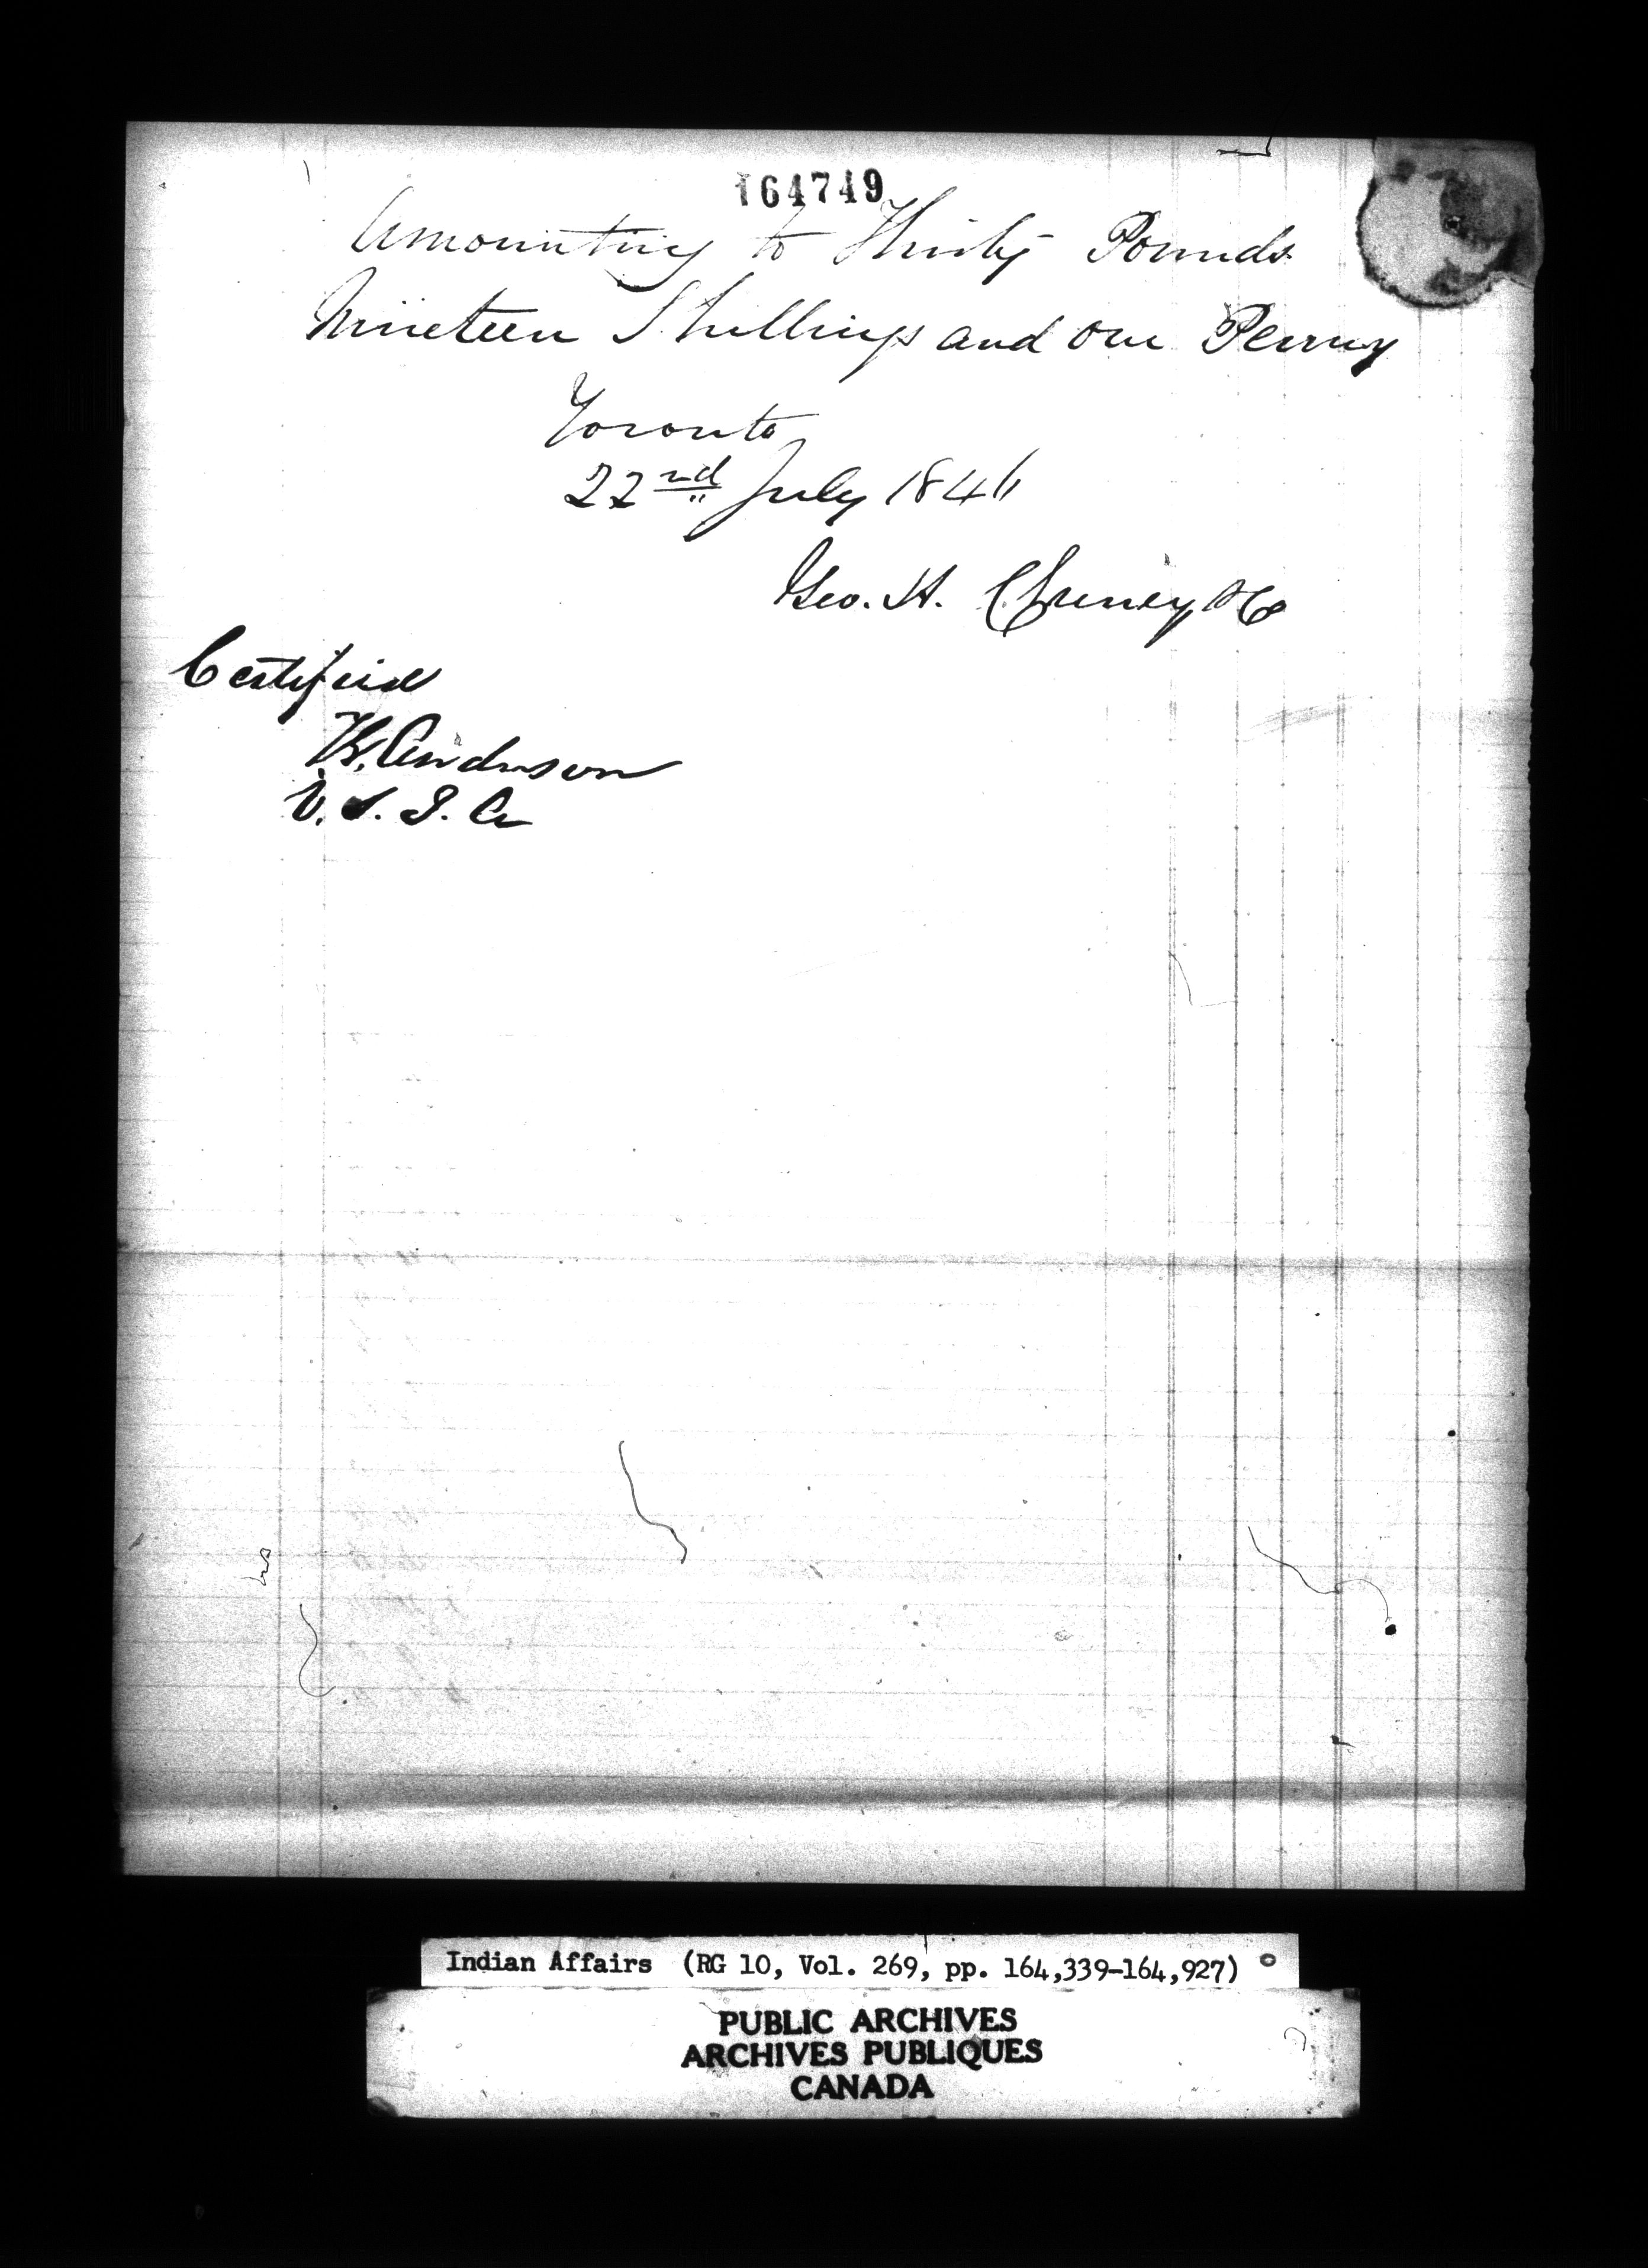 164749
Amounting to Thirty Pounds
Nineteen Shillings and one Penny
Toronto
22nd July 1846
Geo. H. Cheney & Co
Certified
Anderson
V. S. I. A
Indian Affairs (RG 10, Vol. 269, pp. 164,339-164,927)
PUBLIC ARCHIVES
ARCHIVES PUBLIQUES
CANADA